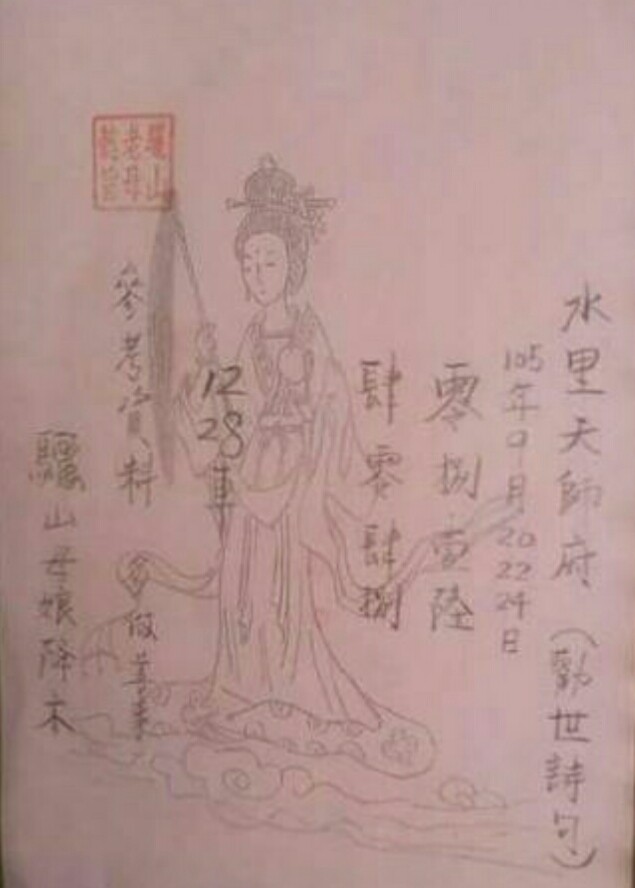 水里天師府（勸世詩句）
105年9月20 22 24日
零捌壹陸
肆零肆捌
12
28車
參考資料 多做善事
驪山母娘降示
驪山
老母